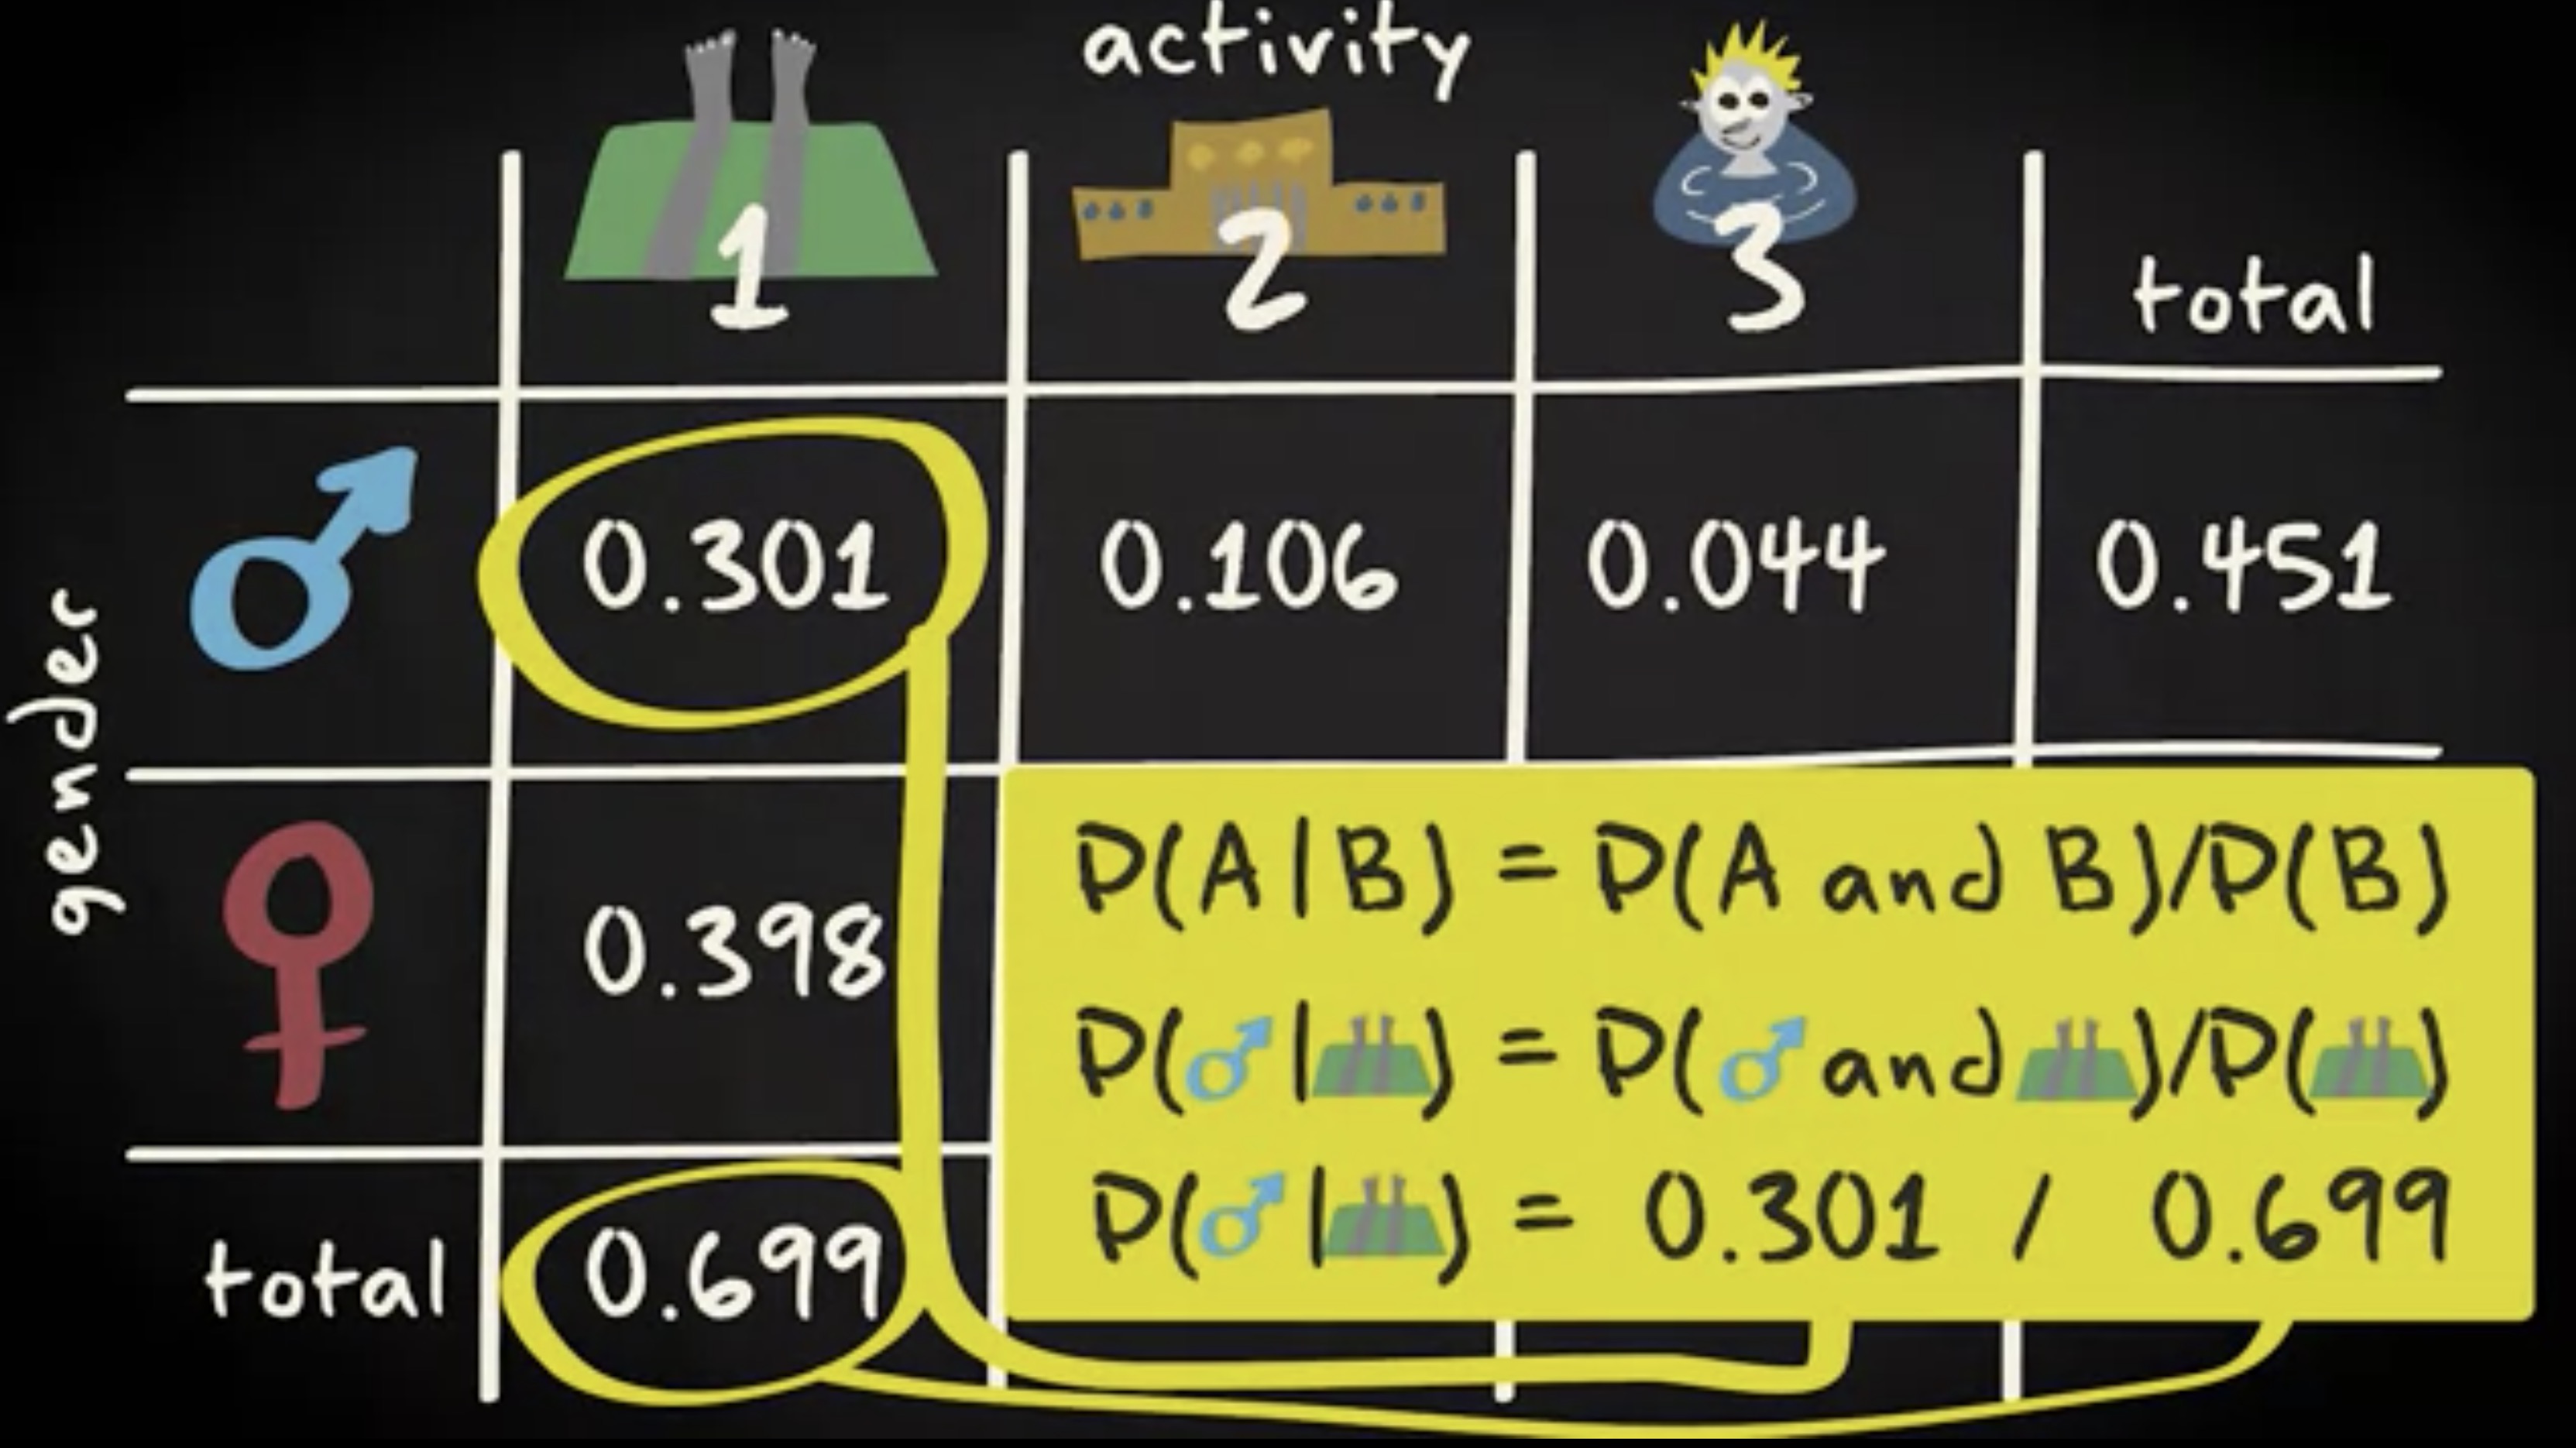 activity
1 2 3 total
0.301 0.106 0.044 0.451
gender
0.398
total 0.699
P(A|B) = P(A and B)/P(B)
P(♂|) = P(♂ and )/P()
P(♂|) = 0.301 / 0.699